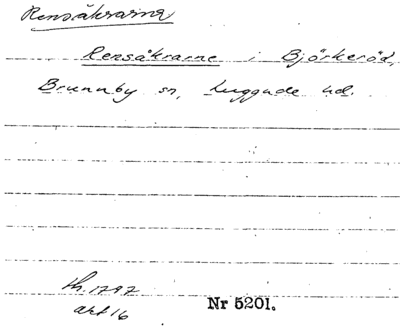 Rensåkrarna
Rensåkrarne i Björkeröd,
Brunnby sn, Luggude hd.
Lh. 1797
akt 16
Nr 5201.